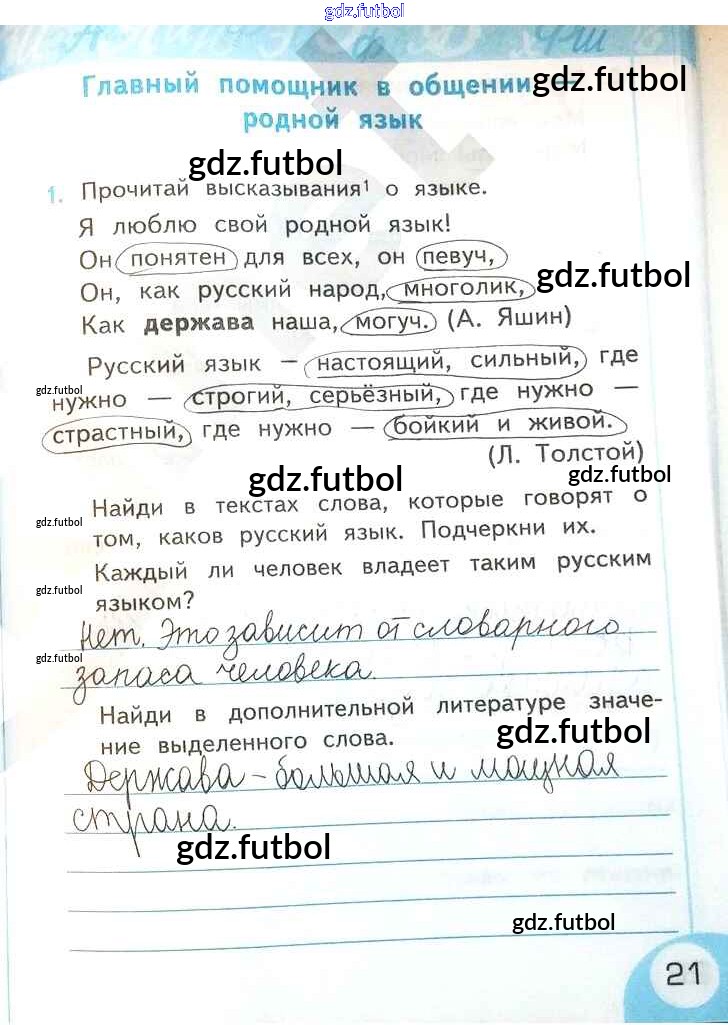 gdz.futbol
Главный помощник в общении —
gdz.futbol
родной язык
gdz.futbol
1. Прочитай высказывания¹ о языке.
Я люблю свой родной язык!
Он понятен для всех, он певуч,
gdz.futbol
Он, как русский народ, многолик,
Как держава наша, могуч. (А. Яшин)
Русский язык — настоящий, сильный, где
gdz.futbol
нужно — строгий, серьёзный, где нужно —
страстный, где нужно — бойкий и живой.
(Л. Толстой)
gdz.futbol
gdz.futbol
Найди в текстах слова, которые говорят о
gdz.futbol
том, каков русский язык. Подчеркни их.
Каждый ли человек владеет таким русским
gdz.futbol
языком?
Нет. Это зависит от словарного
gdz.futbol
запаса человека.
Найди в дополнительной литературе значе-
gdz.futbol
ние выделенного слова.
Держава - большая и мощная
страна.
gdz.futbol
gdz.futbol
21